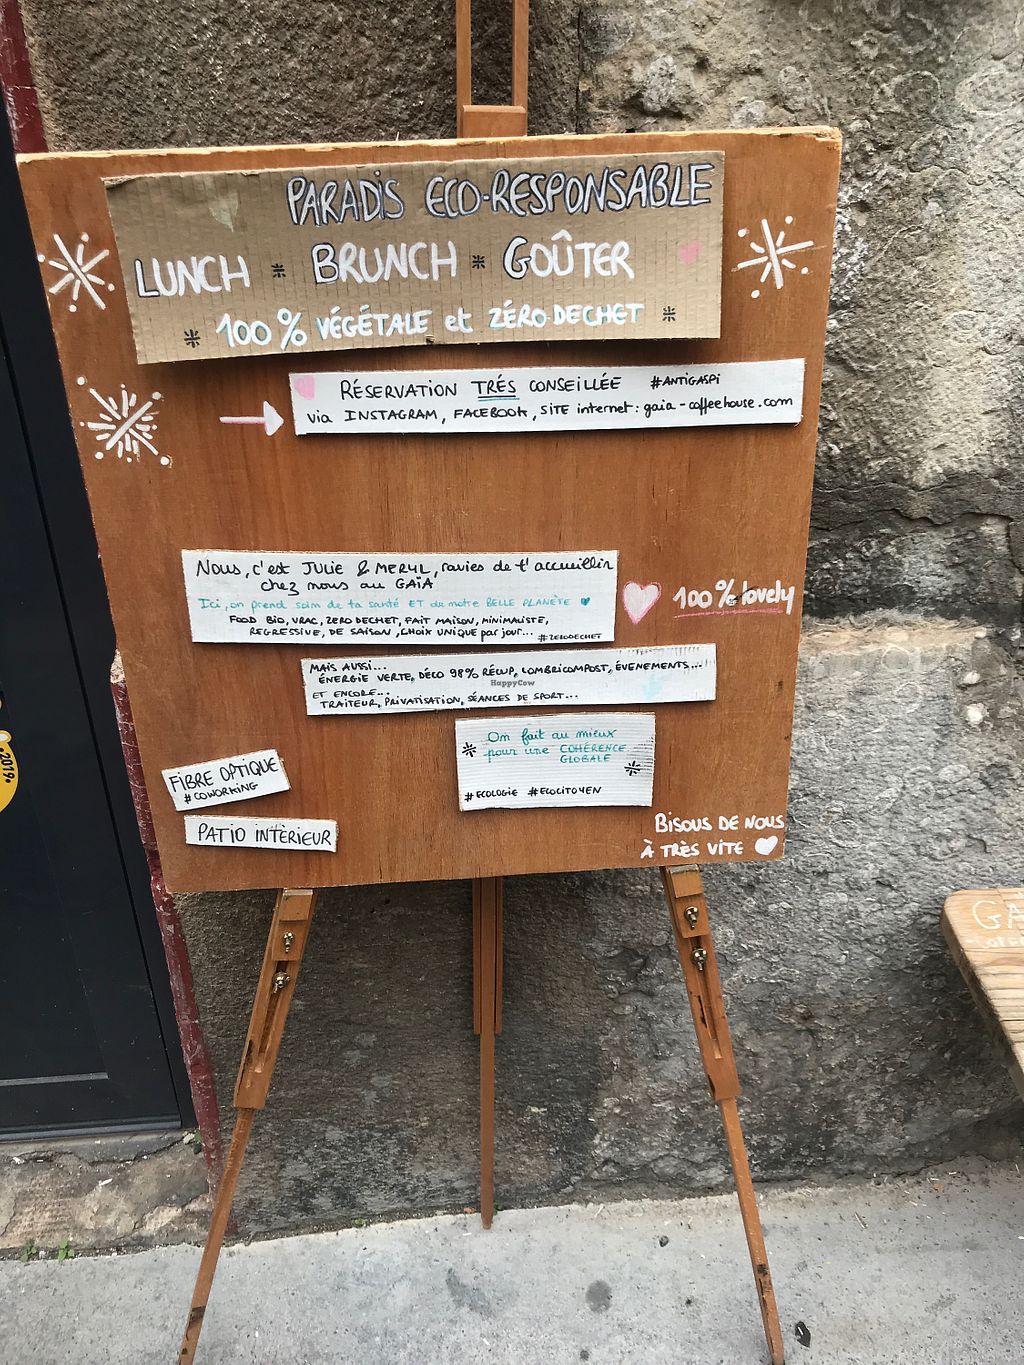 PARADIS ECO-RESPONSABLE
LUNCH * BRUNCH * GOÛTER
* 100% VÉGÉTALE et ZÉRO-DECHET *
RÉSERVATION TRÉS CONSEILLÉE #ANTIGASPI
via INSTAGRAM, FACEBOOK, SITE internet : gaia-coffeehouse.com
Nous, c'est JULIE & MERYL, ravies de t'accueillir
chez nous au GAÏA
Ici, on prend soin de ta santé ET de notre BELLE PLANÈTE
FOOD BIO, VRAC, ZERO DECHET, FAIT MAISON, MINIMALISTE,
REGRESSIVE, DE SAISON, CHOIX UNIQUE par jour... #ZERODECHET
100% lovely
MAIS AUSSI...
ÉNERGIE VERTE, DÉCO 98% RÉCUP, LOMBRICOMPOST, ÉVENEMENTS...
HappyCow
ET ENCORE...
TRAITEUR, PRIVATISATION, SÉANCES DE SPORT...
* On fait au mieux
pour une COHÉRENCE
GLOBALE *
#ECOLOGIE #ECOCITOYEN
FIBRE OPTIQUE
#COWORKING
PATIO INTÈRIEUR
BISOUS DE NOUS
À TRÈS VITE
2019